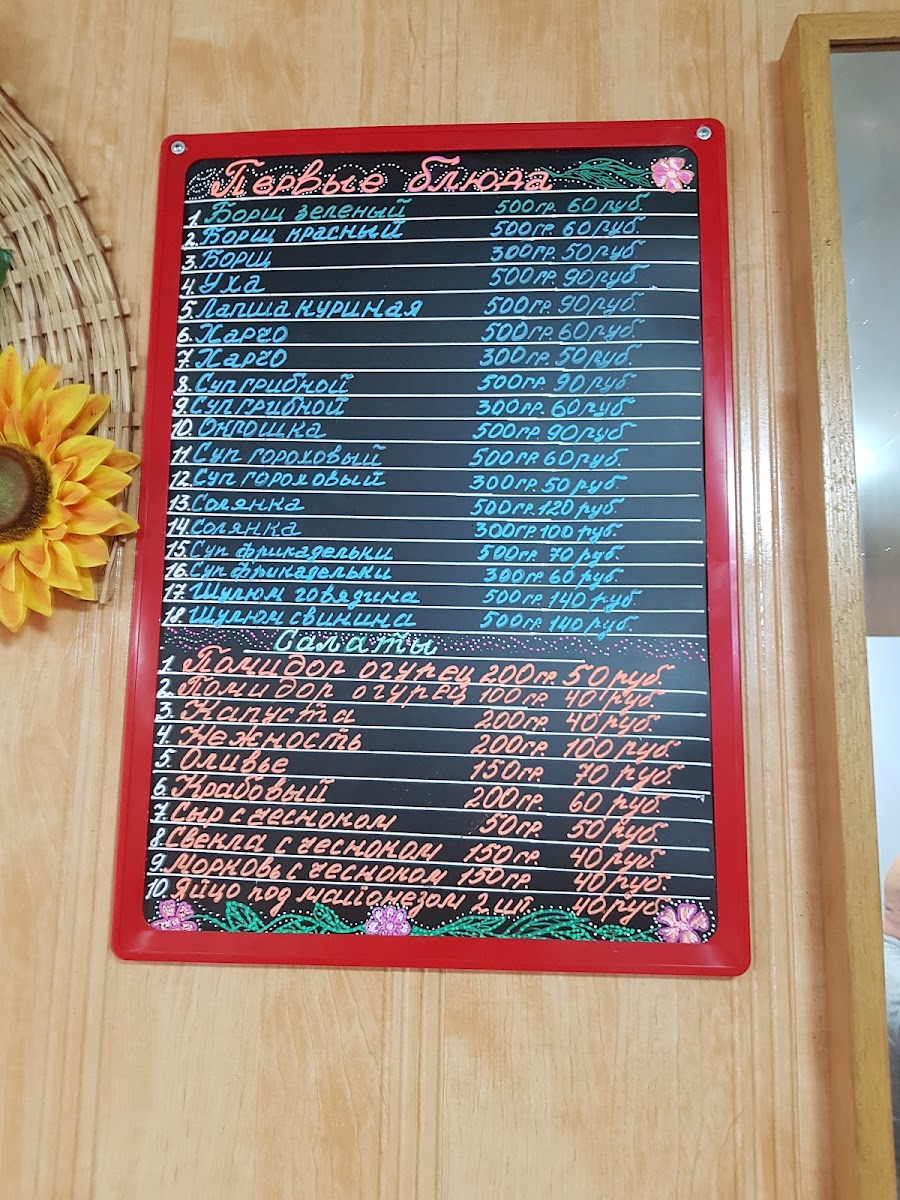 Первые блюда
1. Борщ зеленый 500гр. 60руб.
2. Борщ красный 500гр. 60руб.
3. Борщ 300гр. 50руб.
4. Уха 500гр. 90руб.
5. Лапша куриная 500гр. 90руб.
6. Харчо 500гр. 60руб.
7. Харчо 300гр. 50руб.
8. Суп грибной 500гр. 90руб.
9. Суп грибной 300гр. 60руб
10. Окрошка 500гр. 90руб
11. Суп гороховый 500гр. 60руб.
12. Суп гороховый 300гр. 50руб.
13. Солянка 500гр. 120руб.
14. Солянка 300гр. 100руб.
15. Суп фрикадельки 500гр. 70руб.
16. Суп фрикадельки 300гр. 60руб.
17. Шулюм говядина 500гр. 140руб.
18. Шулюм свинина 500гр. 140руб.
Салаты
1. Помидор огурец 200гр. 50руб
2. Помидор огурец 100гр. 40руб.
3. Капуста 200гр. 40руб.
4. Нежность 200гр. 100руб.
5. Оливье 150гр. 70руб.
6. Крабовый 200гр. 60руб.
7. Сыр с чесноком 50гр. 50руб.
8. Свекла с чесноком 150гр. 40руб.
9. Морковь с чесноком 150гр. 40руб.
10. Яйцо под майонезом 2шт 40руб.